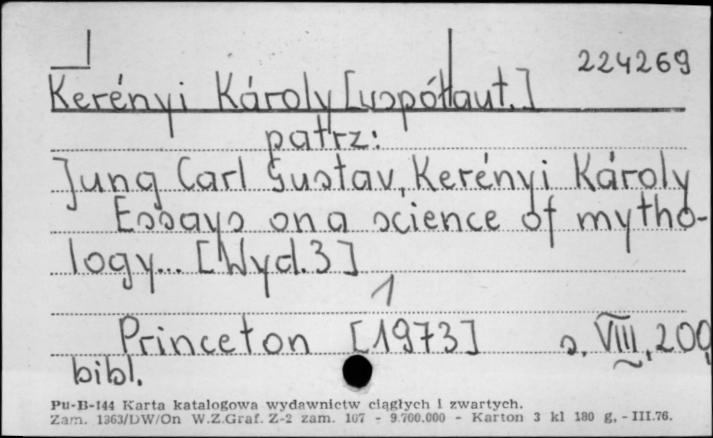 224269
Kerényi Károly [współaut.]
patrz:
Jung Carl Gustav, Kerényi Károly
Essays on a science of mytho-
logy... [Wyd. 3]
1
Princeton [1973] s. VIII, 200
bibl.
Pu-B-144 Karta katalogowa wydawnictw ciągłych i zwartych.
Zam. 1363/DW/On W.Z.Graf. Z-2 zam. 107 - 9.700.000 - Karton 3 kl 180 g. - III.76.